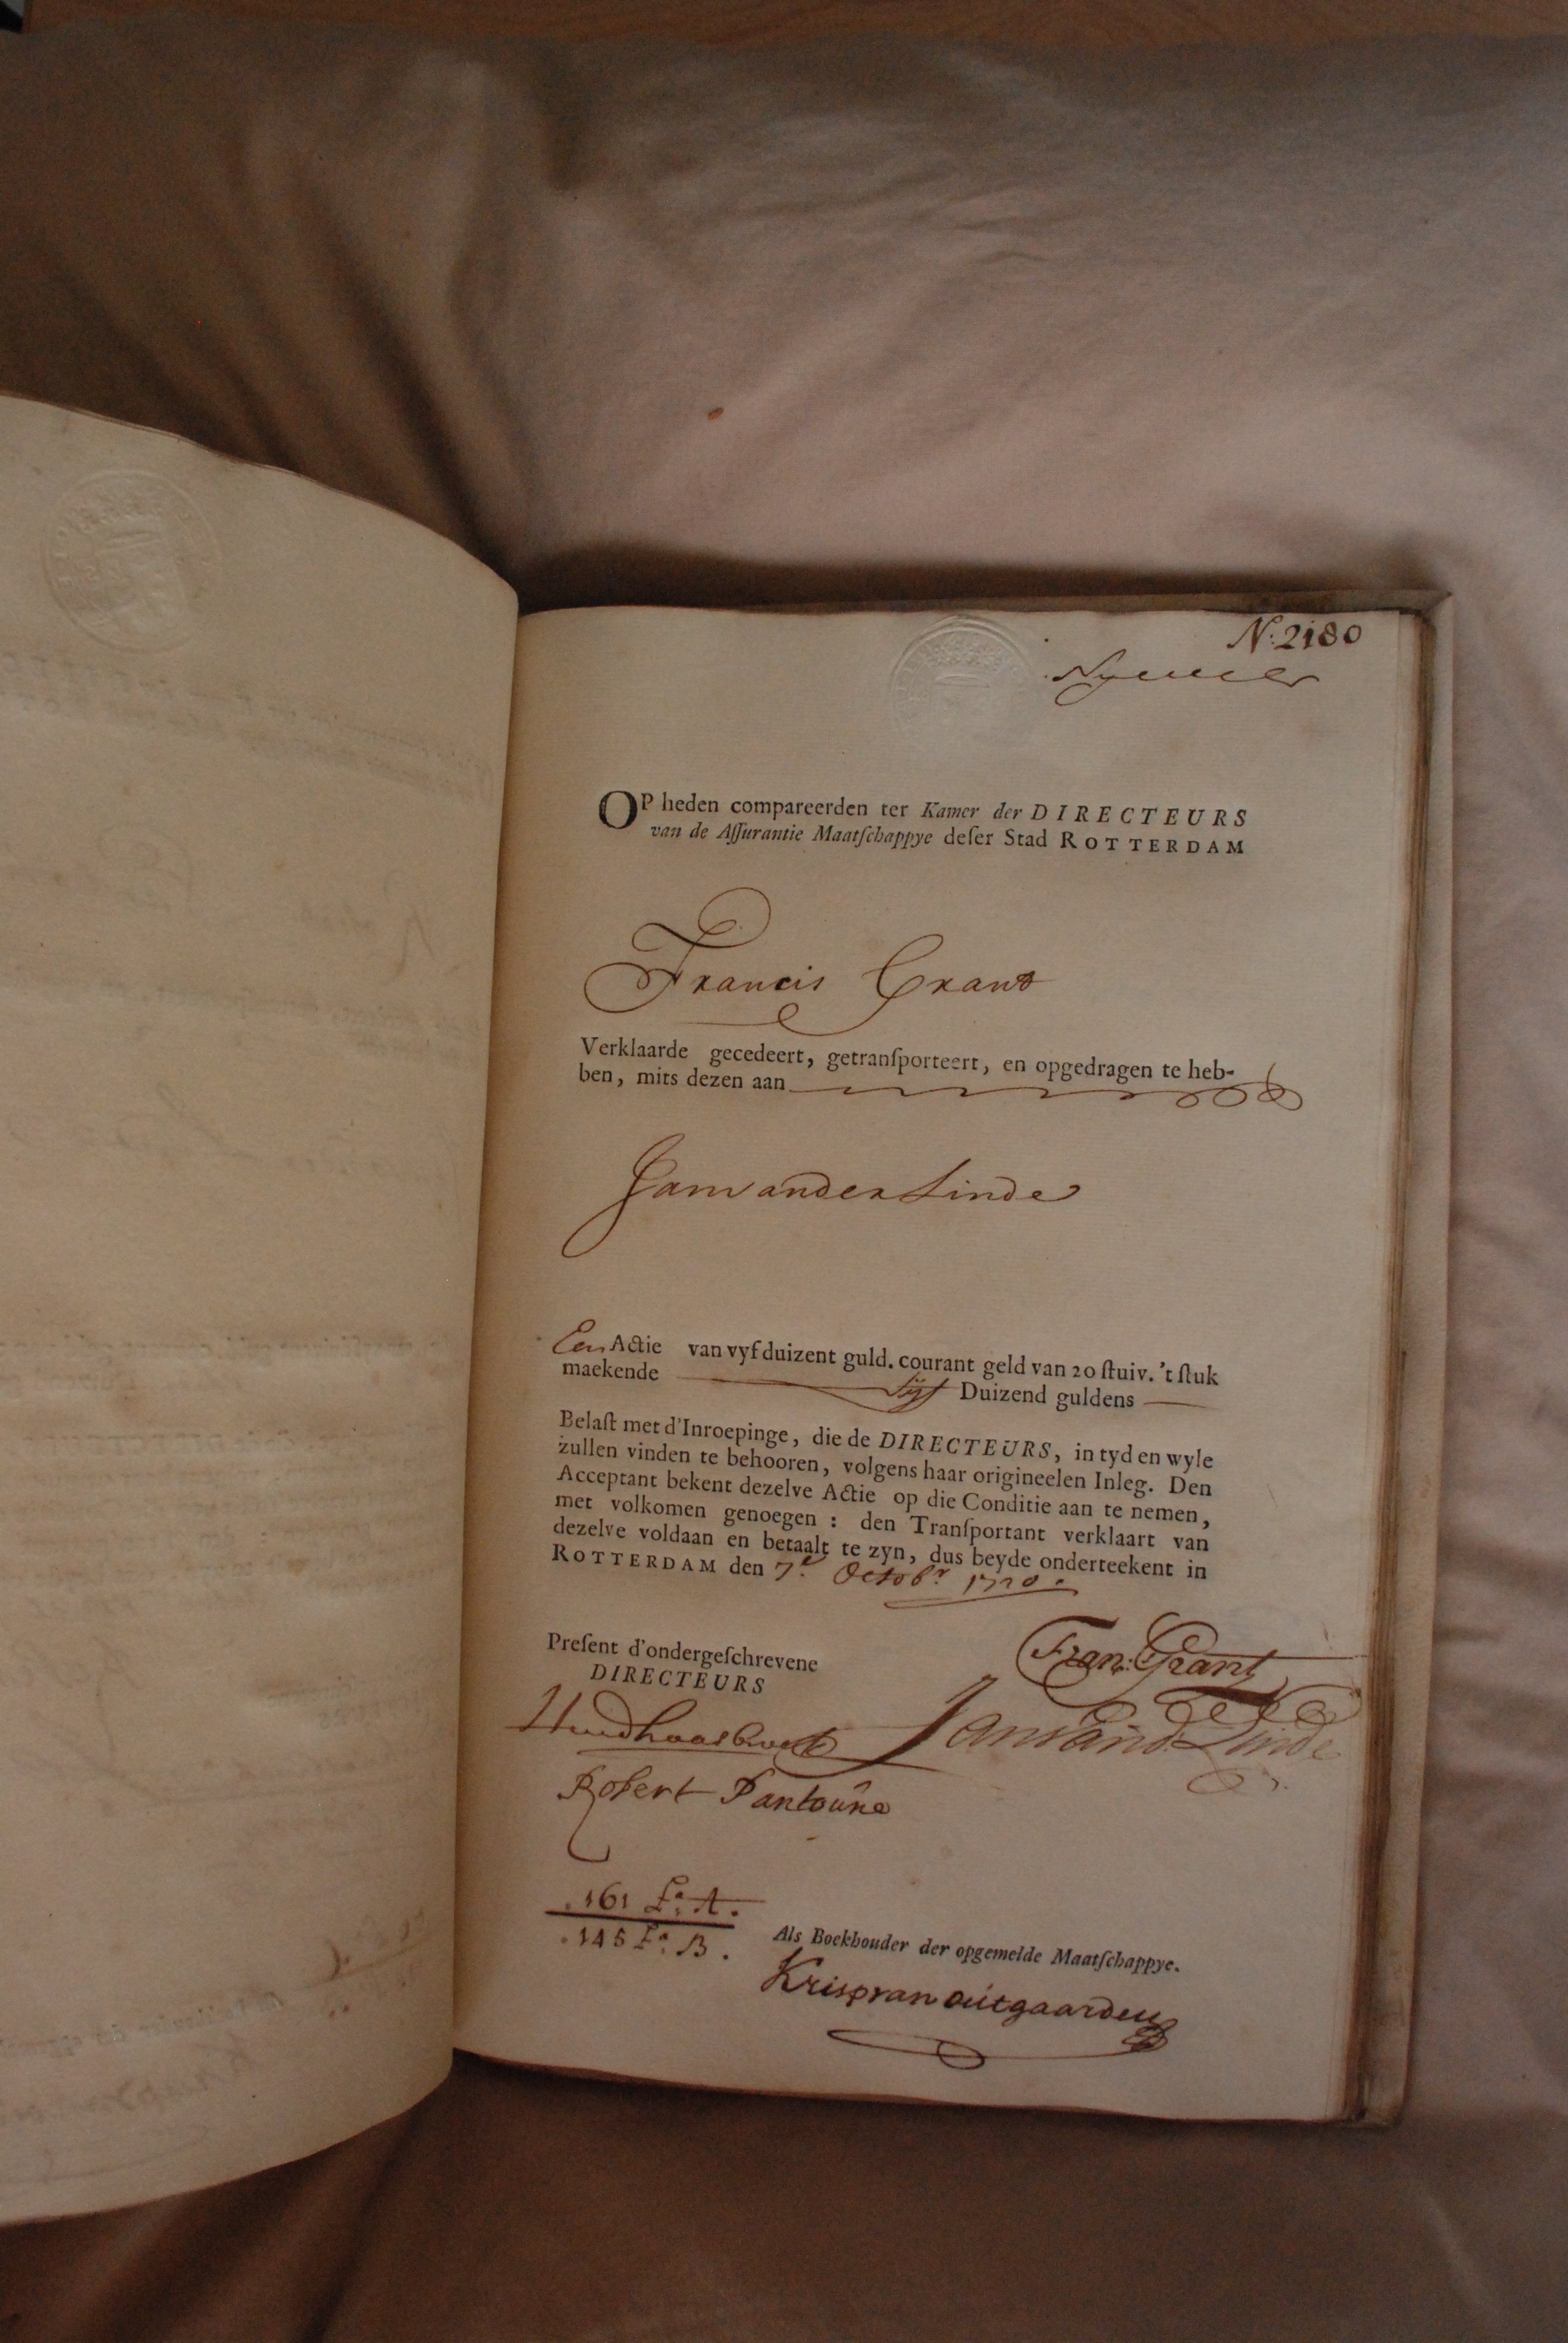 N: 2180
OP heden compareerden ter Kamer der DIRECTEURS
van de Aſſurantie Maatſchappye deſer Stad ROTTERDAM
Francis Grant
Verklaarde gecedeert, getranſporteert, en opgedragen te heb-
ben, mits dezen aan
Jan vander Linde
Een Actie van vyf duizent guld. courant geld van 20 ſtuiv. 't ſtuk
maekende Vijf Duizend guldens
Belaſt met d'Inroepinge, die de DIRECTEURS, in tyd en wyle
zullen vinden te behooren, volgens haar origineelen Inleg. Den
Acceptant bekent dezelve Actie op die Conditie aan te nemen,
met volkomen genoegen : den Tranſportant verklaart van
dezelve voldaan en betaalt te zyn, dus beyde onderteekent in
ROTTERDAM den 7.e Octobr. 1720.
Preſent d'ondergeſchrevene
DIRECTEURS
Fran: Grant
Jan Vand. Linde
Robert Santoúne
161 La. A.
145 La. B.
Als Boekhouder der opgemelde Maatſchappye.
Krisp van outgaarden